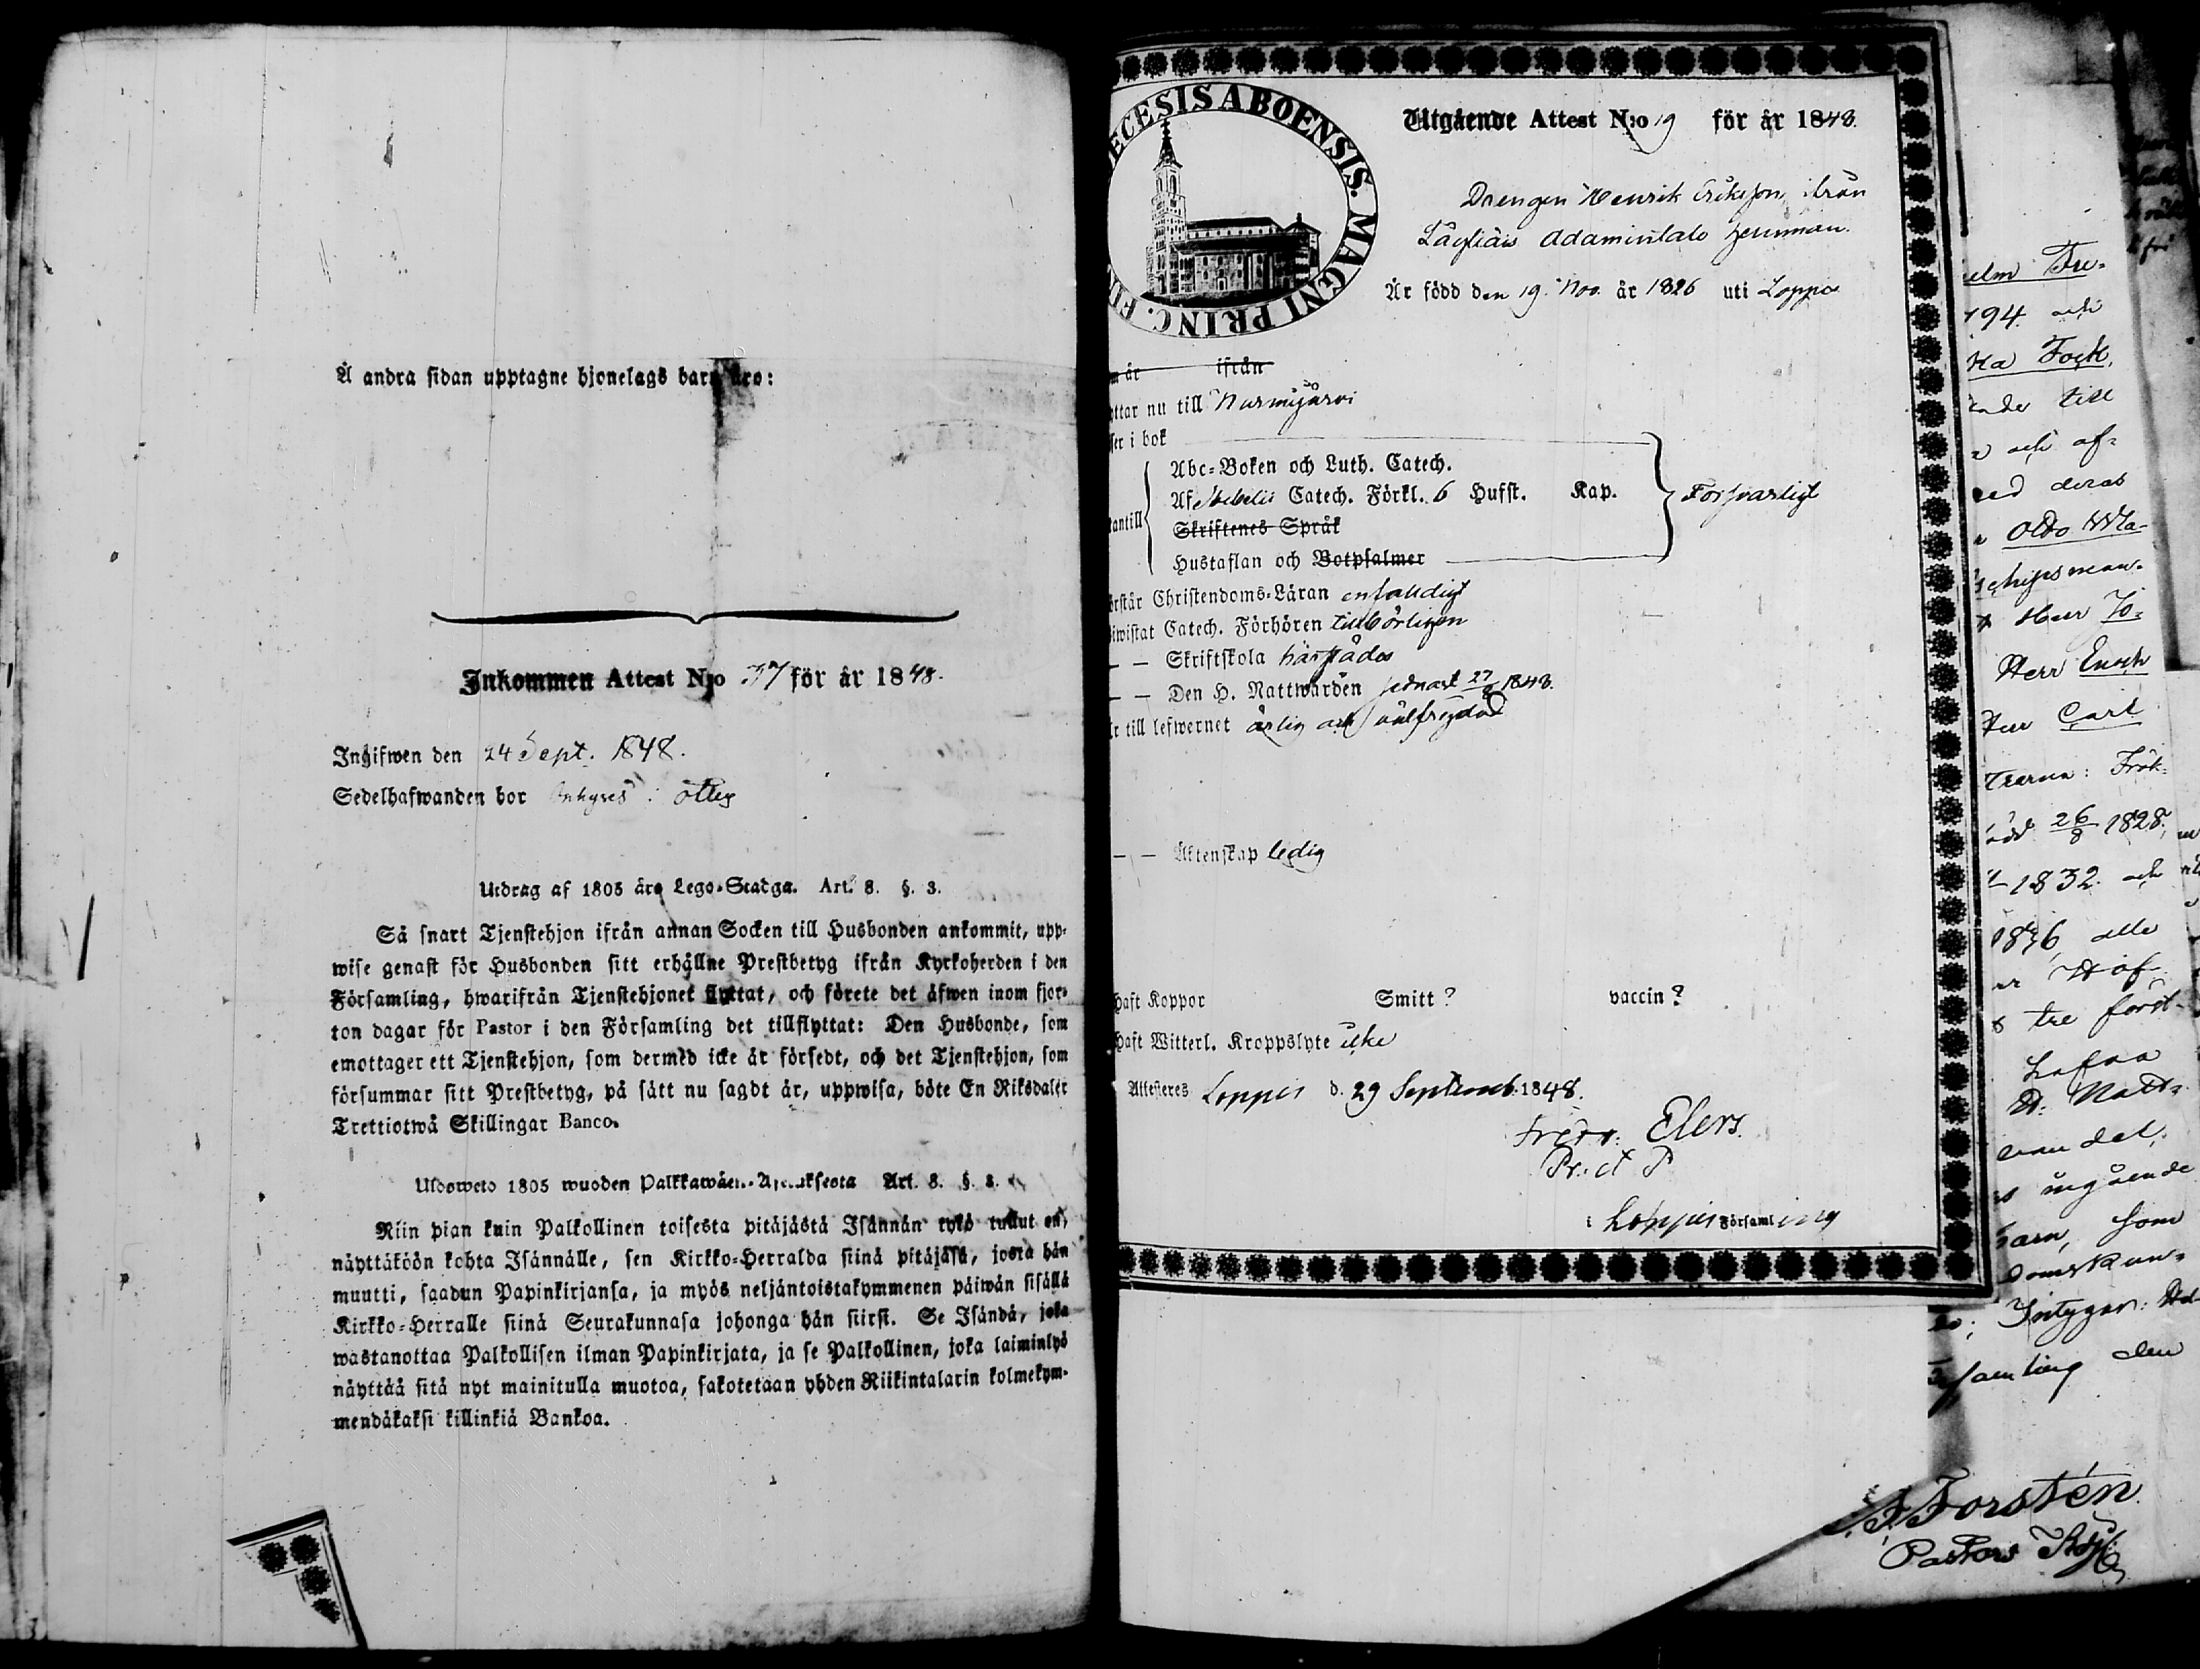 Å andra sidan upptagne hjonelags barn äro:
Inkommen Attest N:o 37 för år 1848.
Ingifwen den 24 Sept. 1848.
Sedelhafwanden bor
Utdrag af 1805 års Lego-Stadga. Art. 8. §. 3.
Så snart Tjenstehjon ifrån annan Socken till Husbonden ankommit, upp-
wise genast för Husbonden sitt erhållne Prestbetyg ifrån Kyrkoherden i den
Församling, hwarifrån Tjenstehjonet flyttat, och förete det äfwen inom fjor-
ton dagar för Pastor i den Församling det tillflyttat: Den Husbonde, som
emottager ett Tjenstehjon, som dermed icke är försedt, och det Tjenstehjon, som
försummar sitt Prestbetyg, på sätt nu sagdt är, uppwisa, böte En Riksdaler
Trettiotwå Skillingar Banco.
Ulosweto 1805 wuoden Palkkawäen-Asetuksesta Art. 8. §. 3.
Niin pian kuin Palkollinen toisesta pitäjästä Isännän tykö tullut on,
näyttäköön kohta Isännälle, sen Kirkko-Herralda siinä pitäjäsä, josta hän
muutti, saadun Papinkirjansa, ja myös neljäntoistakymmenen päiwän sisällä
Kirkko-Herralle siinä Seurakunnasa johonga hän siirsi. Se Isändä, joka
wastanottaa Palkollisen ilman Papinkirjata, ja se Palkollinen, joka laiminlyö
näyttää sitä nyt mainitulla muotoa, sakotetaan yhden Riikintalarin kolmekym-
mendäkaksi killinkiä Bankoa.
ECESIS ABOENSIS. MAGNI PRINC. FI
Utgående Attest N:o 19 för år 1848.
Drengen Henrik Eriksson ifrån
Läyliäis Adamintalo hemman.
Är född den 19. Nov. år 1826 uti Loppis
är ifrån
ttar nu till Nurmijärvi
ser i bok
Abc-Boken och Luth. Catech.
Af Catech. Förkl. 6 Hufst. Kap.
antill
Försvarligt
Skriftenes Språk
Hustaflan och Botpsalmer
örstår Christendoms-Läran enfaldigt
iwistat Catech. Förhören tillbörligen
— — Skriftskola härstädes
— — Den H. Nattwarden sednast 27/8 1848.
r till lefwernet ärlig och välfrejdad
— — Äktenskap ledig
haft Koppor Smitt? vaccin?
haft Witterl. Kroppslyte icke
Attesteras Loppis d. 29 Septemb. 1848.
Elers.
i Loppis Församling
elm Fre-
794 och
till
och af-
deras
Otto Ma-
Herr Jo-
Herr Enoch
Herr Carl
Frök-
26/8 1828,
1832 och
1836, alla
tre först
Natt-
ingående
barn, som
Intygar:
församling den
Forstén
Pastors Adj.